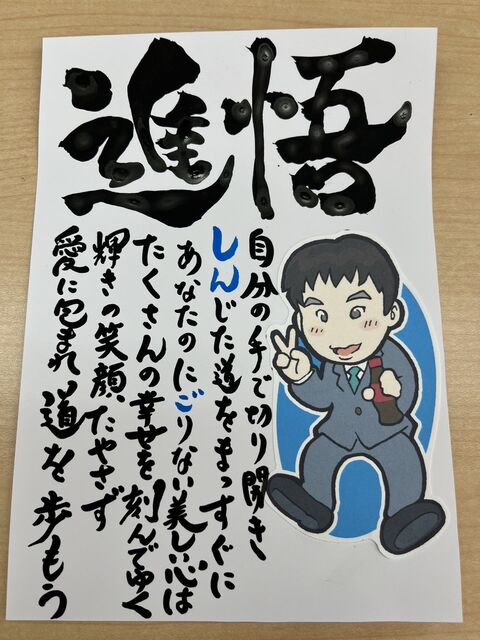 進悟
自分の手で切り開き
しんじた道をまっすぐに
あなたのにごりない美しい心は
たくさんの幸せを刻んでゆく
輝きの笑顔、たやさず
愛に包まれ、道を歩もう